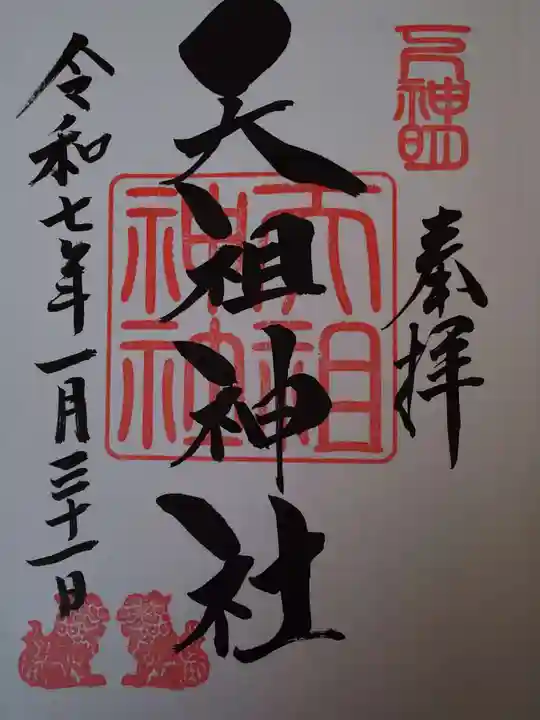 奉拝
天祖神社
天祖神社
令和七年一月三十一日